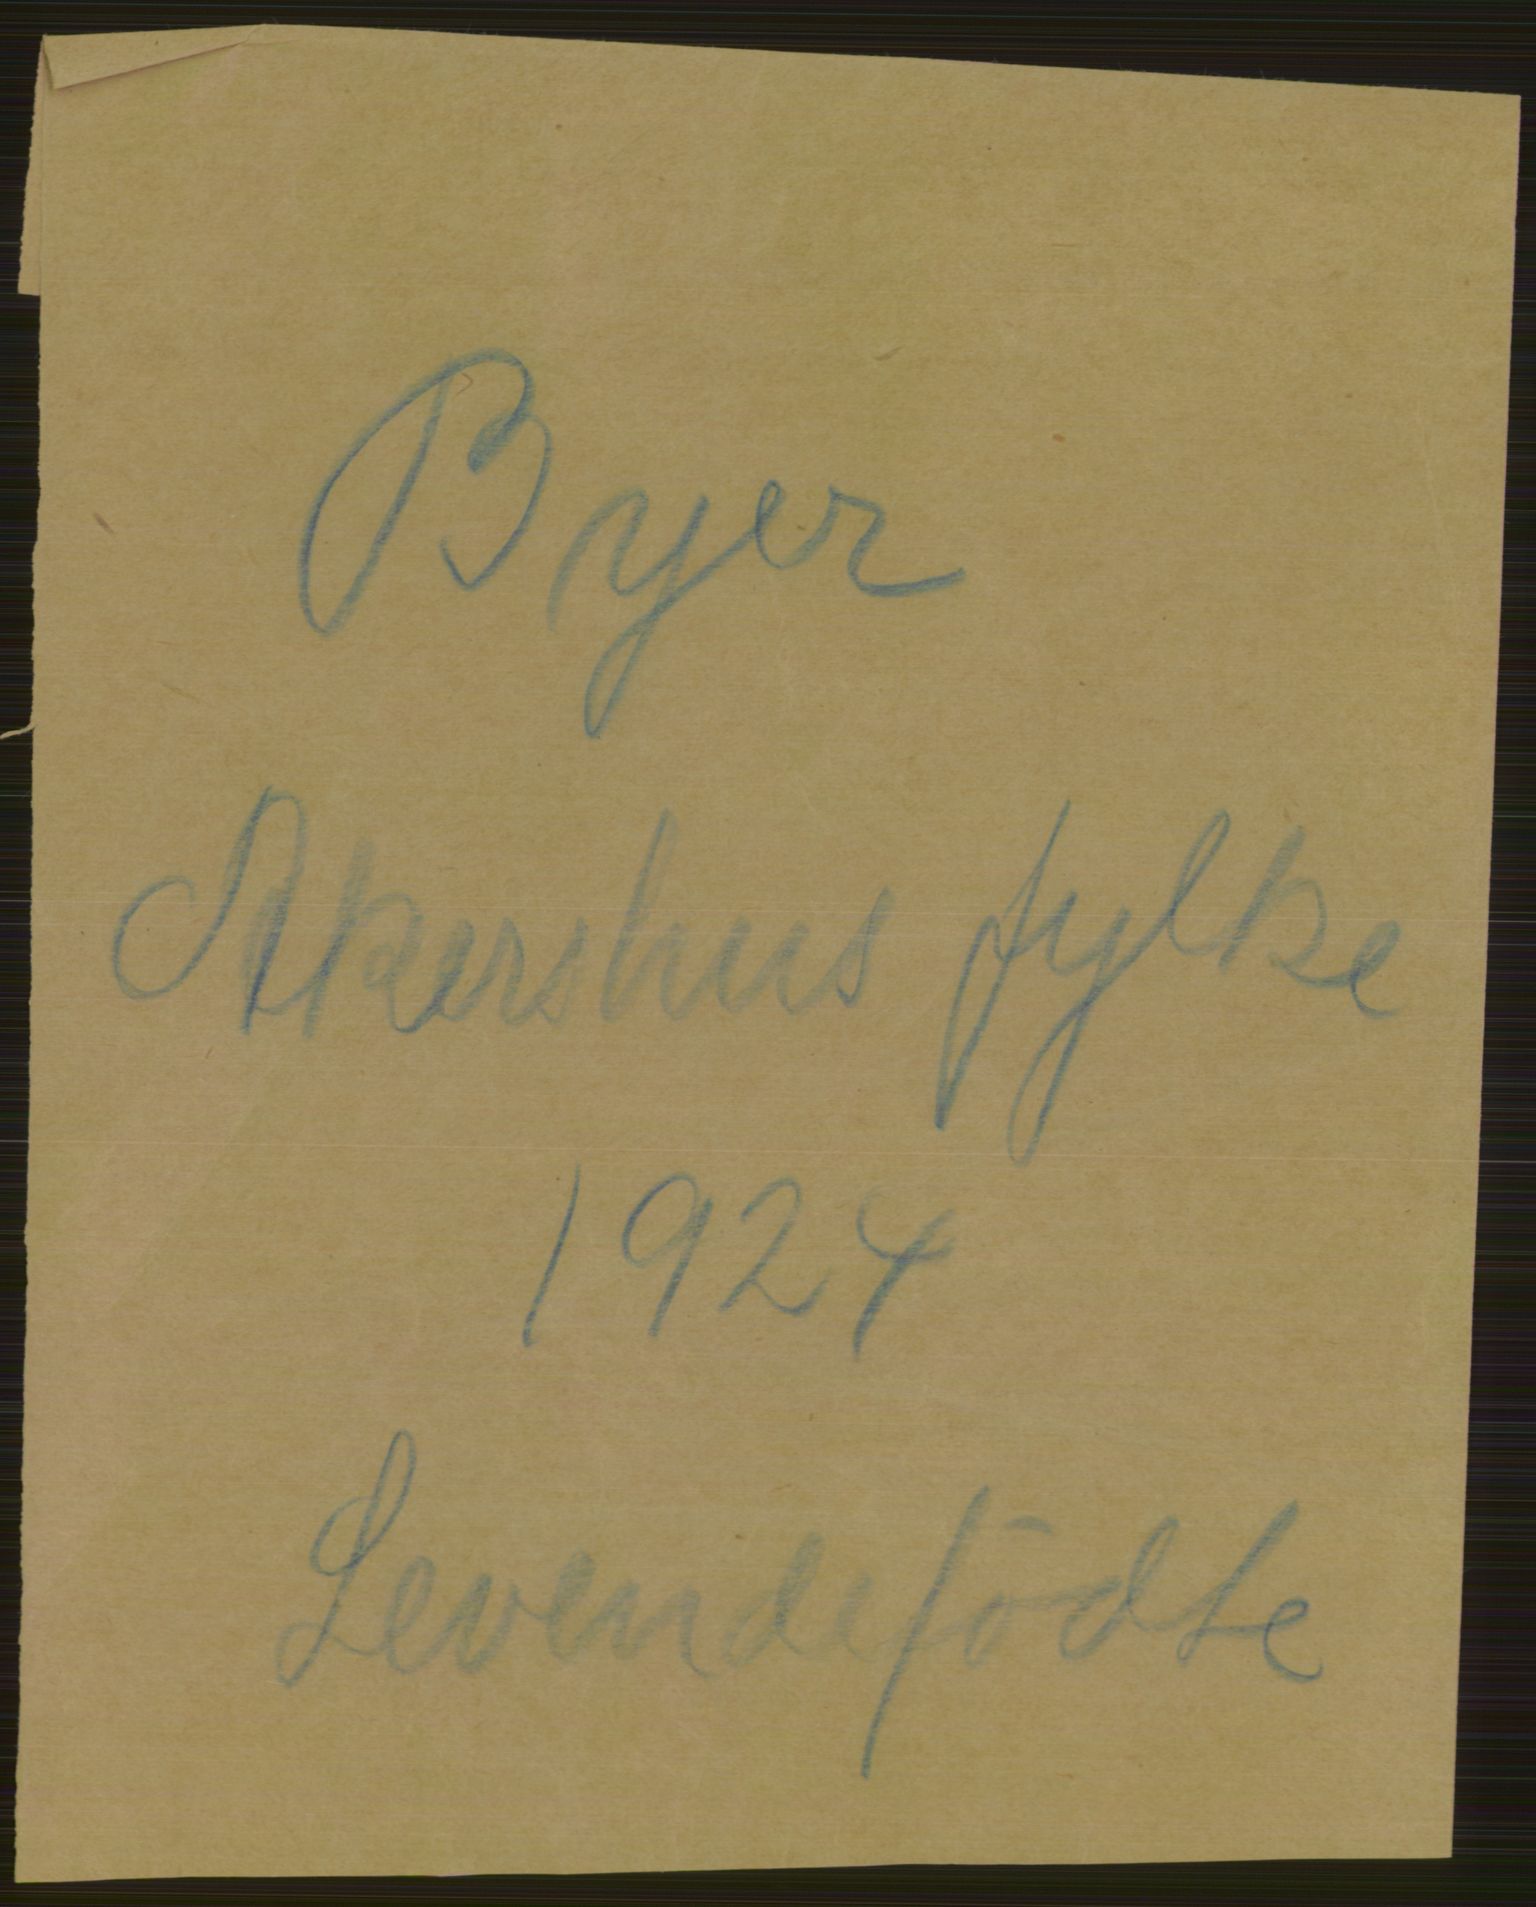 Byer
Akershus fylke
1924
Levendefödte